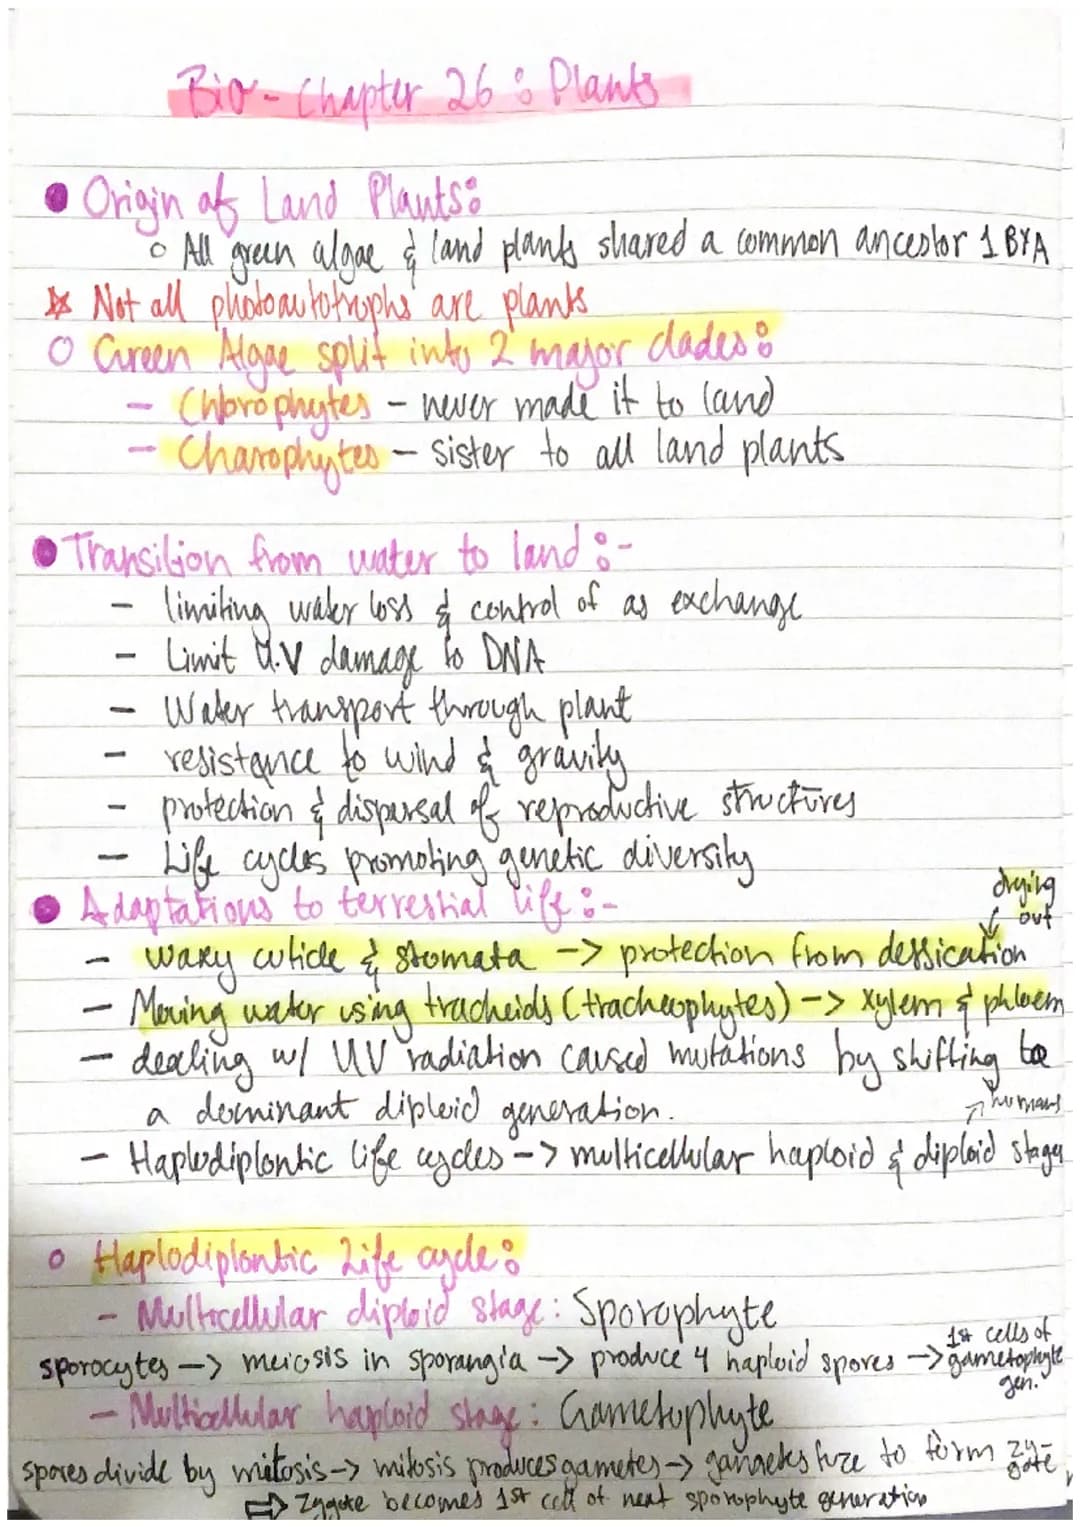 Bio - Chapter 26 : Plants
Origin of Land Plants:
All green algae & land plants shared a common ancestor 1 BYA
Not all photoautotrophs are plants
Green Algae split into 2 major clades:
- Chlorophytes - never made it to land
- Charophytes - sister to all land plants
Transition from water to land :-
- limiting water loss & control of as exchange
- Limit U.V damage to DNA
- Water transport through plant
- resistance to wind & gravity
- protection & dispersal of reproductive structures
- Life cycles promoting genetic diversity
Adaptations to terrestrial life :-
drying out
- waxy cuticle & stomata -> protection from dessication
- Moving water using tracheids (tracheophytes) -> xylem & phloem
- dealing w/ UV radiation caused mutations by shifting to
a dominant diploid generation.
humans
- Haplodiplontic life cycles -> multicellular haploid & diploid stages
Haplodiplontic Life cycle:
- Multicellular diploid stage: Sporophyte
sporocytes -> meiosis in sporangia -> produce 4 haploid spores -> 1st cells of gametophyte gen.
- Multicellular haploid stage: Gametophyte
spores divide by mitosis -> mitosis produces gametes -> gametes fuze to form zy-gote
⇒ Zygote becomes 1st cell of next sporophyte generation